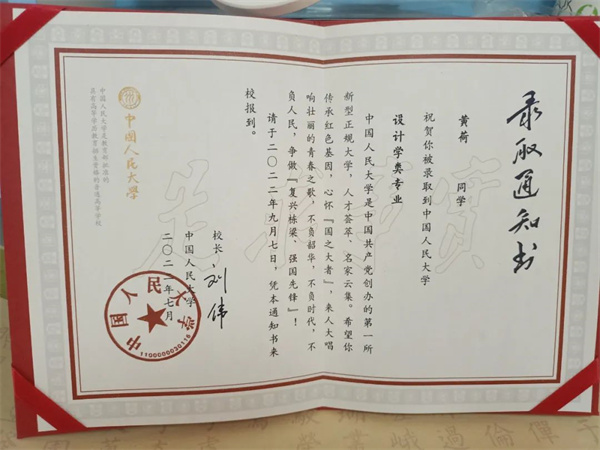 录取通知书
黄荷 同学
祝贺你被录取到中国人民大学
设计学类专业
中国人民大学是中国共产党创办的第一所
新型正规大学，人才荟萃、名家云集。希望你
传承红色基因，心怀『国之大者』，来人大唱
响壮丽的青春之歌，不负韶华，不负时代，不
负人民，争做『复兴栋梁、强国先锋』！
请于二〇二二年九月七日，凭本通知书来
校报到。
校长 刘伟
中国人民大学
二〇二二年七月
中国人民大学
1100000030116
中国人民大学
中国人民大学是教育部批准的
具有高等学历教育招生资格的普通高等学校
实事求是